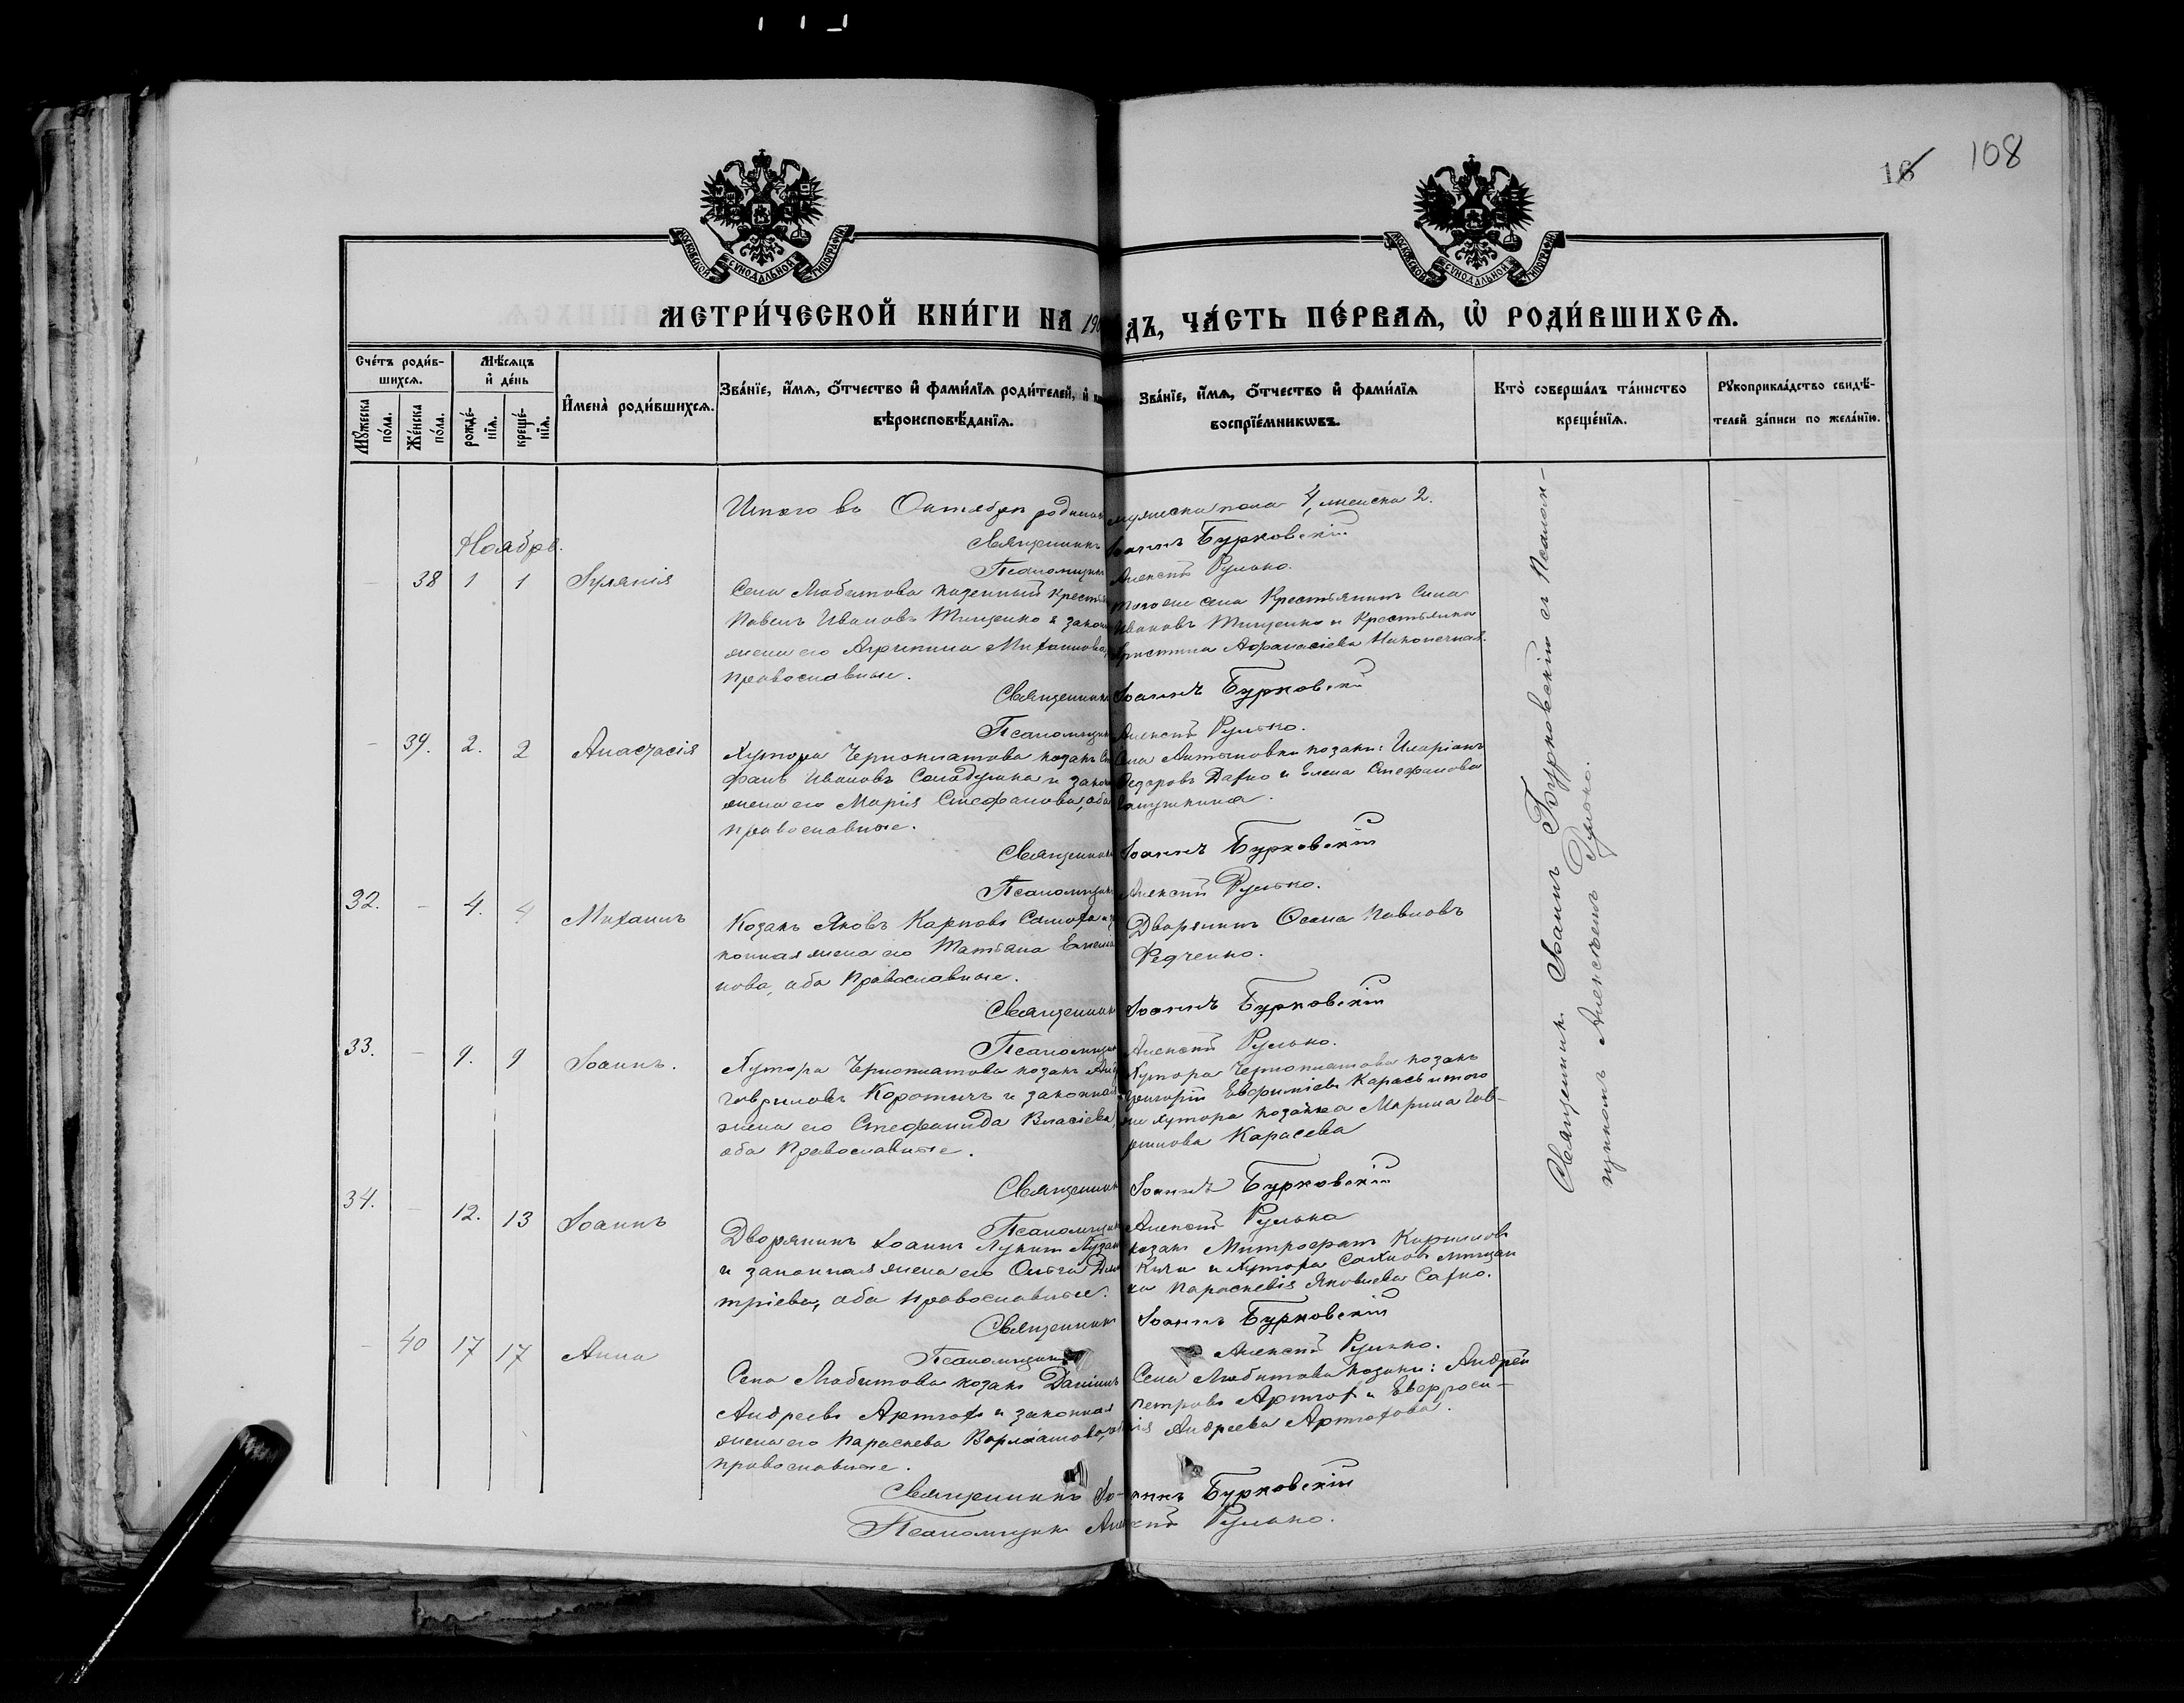 108
16
МОСКОВСКОЙ СѴНОДАЛЬНОЙ ТИПОГРАФІИ
МОСКОВСКОЙ СѴНОДАЛЬНОЙ ТИПОГРАФІИ
МЕТРИ́ЧЕСКОЙ КНИ́ГИ НА 190
ДЪ, ЧА́СТЬ ПЕ́РВАѦ, Ѡ҆ РОДИ́ВШИХСѦ.
Сче́тъ роди́в-
шихсѧ.
Мꙋ́жеска
по́ла.
Же́нска
по́ла.
Мѣ́сѧцъ
и҆ де́нь
рожде́-
нїѧ.
креще́-
нїѧ.
И҆мена̀ роди́вшихсѧ.
Зва́нїе, и҆́мѧ, ѻ҆́тчество и҆ фами́лїѧ роди́телей, и҆
вѣроисповѣ́данїѧ.
Зва́нїе, и҆́мѧ, ѻ҆́тчество и҆ фами́лїѧ
воспрїе́мникѡвъ.
Кто̀ соверша́лъ та́инство
креще́нїѧ.
Рꙋкоприкла́дство свидѣ́-
телей за́писи по жела́нїю.
Итого въ Октябрѣ родилось мужеска пола 4, женска 2.
Священникъ Іоаннъ Бурковскій
Псаломщикъ Алексѣй Рулько.
Ноябрь.
38 1 1 Іуліанія
Села Любитова казенный крестьян
Павелъ Ивановъ Тищенко и закон
жена его Агрипина Михайлова,
православные.
того же села Крестьянинъ Сила
Ивановъ Тищенко и Крестьянка
Христина Афанасіева Никонечная.
Священникъ Іоаннъ Бурковскій
Псаломщикъ Алексѣй Рулько.
39. 2. 2 Анастасія
Хутора Черноплатова козакъ Сте
фанъ Ивановъ Солодушка и закон
жена его Марія Стефанова, оба
православные.
Села Литыновки козаки: Иларіонъ
Федоровъ Дахно и Елена Стефанова
Священникъ Іоаннъ Бурковскій
Псаломщикъ Алексѣй Рулько.
32. - 4. 4 Михаилъ
Козакъ Яковъ Карповъ Самоха и за
конная жена его Татьана Емеліа
нова, оба Православные.
Дворянинъ Осипъ Павловъ
Редченко.
Священникъ Іоаннъ Бурковскій
Псаломщикъ Алексѣй Рулько.
33. - 9. 9 Іоаннъ.
Хутора Черноплатова козакъ
Гавриловъ Коротичъ и законная
жена его Стефанида Власіева,
оба Православные.
Хутора Черноплатова козакъ
Григорій Евфиміевъ Карась и того
же хутора козачка Марина Гав-
рилова Карасева
Священникъ Іоаннъ Бурковскій
Псаломщикъ Алексѣй Рулько
34. - 12. 13 Іоаннъ
Дворянинъ Іоаннъ Лукинъ
и законная жена его Ольга Дими
тріева, оба Православные.
козакъ Митрофанъ Кирилловъ
Кича и хутора Сахнов мѣщан
ка Параскевія Яковлева Сахно.
Священникъ Іоаннъ Бурковскій
Псаломщикъ Алексѣй Рулько.
- 40 17 17 Анна
Села Любитова козакъ Даніилъ
Андреевъ Артюхъ и законная
жена его Параскева Варлаамова,
православные.
Села Любитова козаки: Андрей
Петровъ Артюхъ и Евфроси-
нія Андреева Артюхова.
Священникъ Іоаннъ Бурковскій
Псаломщикъ Алексѣй Рулько.
Священникъ Іоаннъ Бурковскій съ Псалом-
щикомъ Алексѣемъ Рулько.